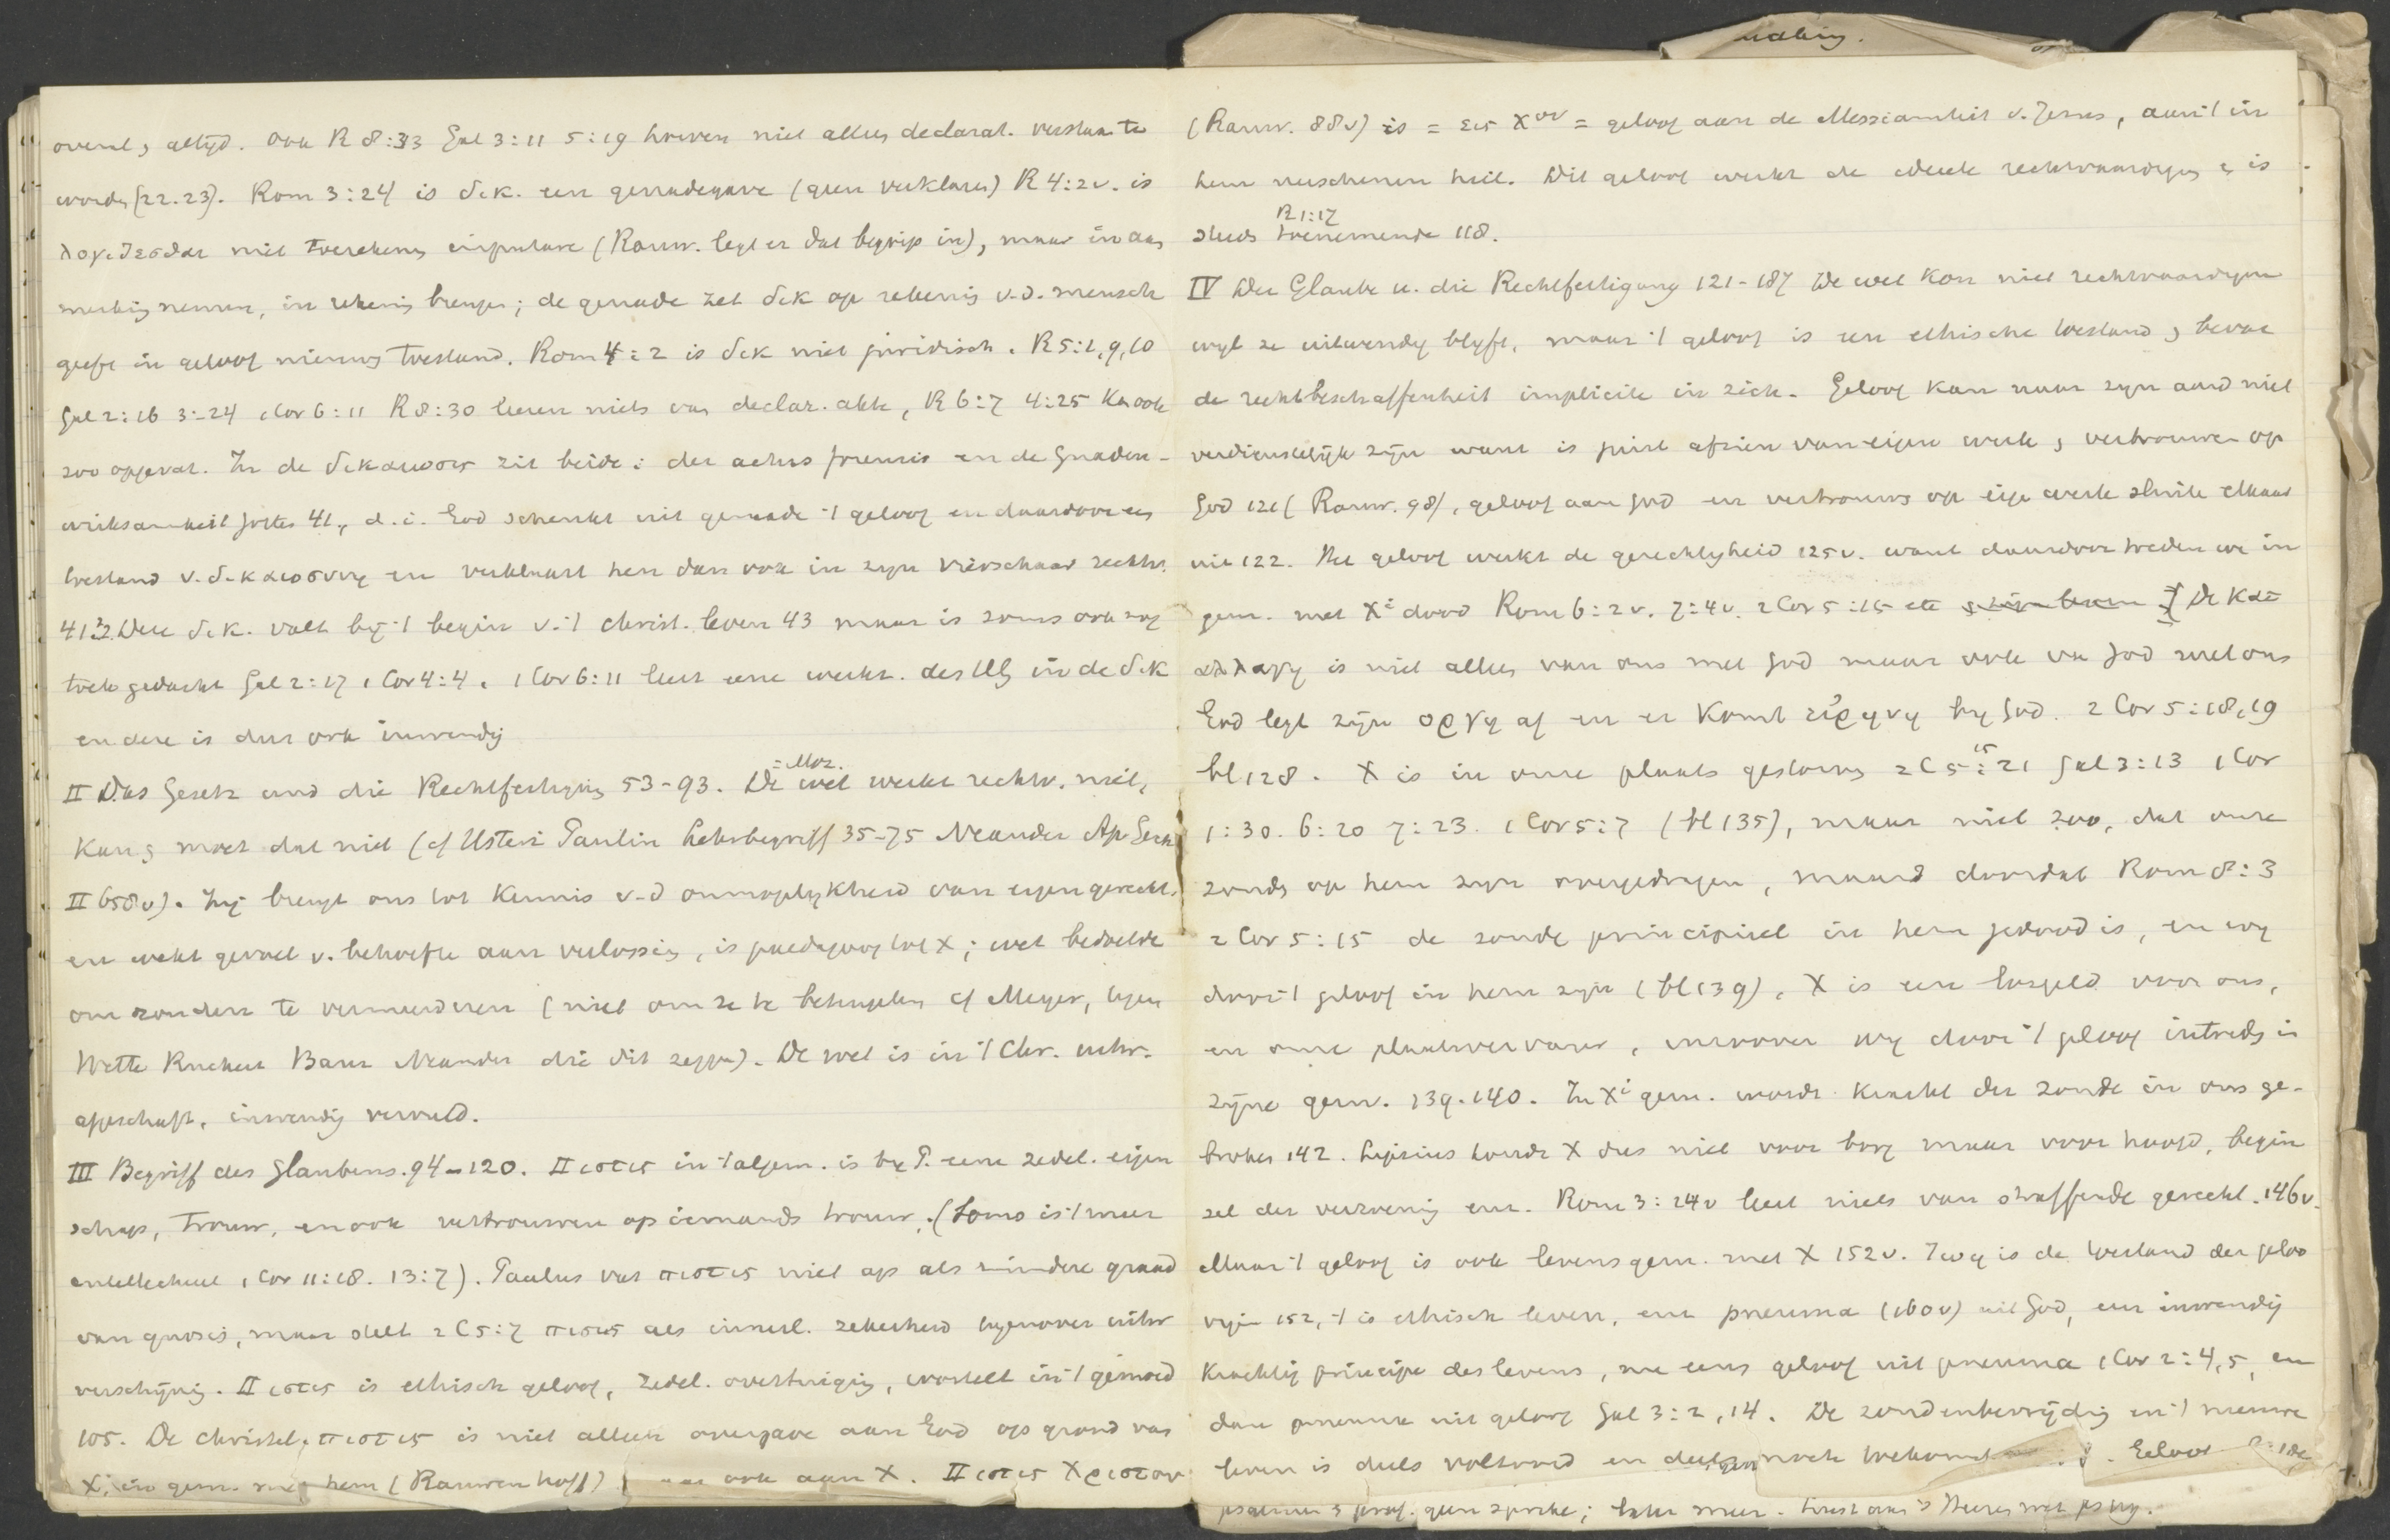 overal & altijd. Ook R 8:33 Gal 3:11 5:19 hoeven niet alleen declarat. verstaan te
worden (22.23). Rom 3:24 is δικ. een genadegave (geen verklaren) R 4:2v. is
λογιζεσθαι niet toerekenen imputare (Rauw. legt er dat begrip in), maar in aan
merking nemen, in rekening brengen; de genade zet δικ op rekening v.d. mensch
geeft in geloof nieuwen toestand. Rom 4:2 is δικ niet juridisch. R 5:1, 9, 10
Gal 2:16 3:24 1 Cor 6:11 R 8:30 leeren niets van declar. akte, R 6:7 4:25 kan ook
zoo opgevat. In de δικαιωσις zit beide: der actus forensis en de Gnaden-
wirksamkeit Gottes 41, d.i. God schenkt uit genade 't geloof en daardoor een
toestand v. δικαιοσυνη en verklaart hen dan ook in zijn vierschaar rechtv.
41.42. Deze δικ. valt bij 't begin v. 't christ. leven 43 maar is soms ook nog
toek. gedacht Gal 2:17 1 Cor 4:4. 1 Cor 6:11 leert eene werkz. des HG in de δικ
en deze is dus ook inwendig
II Das Gesetz und die Rechtfertigung 53-93. De wet = Moz. werkt rechtv. niet,
kan & moet dat niet (cf Usteri Paulin Lehrbegriff 35-75 Neander Ap. Gesch
II 658v). Zij brengt ons tot kennis v.d onmogelijkheid van eigen gerecht.
en wekt gevoel v. behoefte aan verlossing, is paedagoog tot X; wet bedoelde
om zonden te vermeerderen (niet om ze te beteugelen cf Meyer, tegen
Wette Ruckert Baur Neander die dit zeggen). De wet is in 't Chr. uitw.
afgeschaft, inwendig vervuld.
III Begriff des Glaubens. 94-120. Πιστις in 't algem. is bij P. eene zedel. eigen
schap, trouw, en ook vertrouwen op iemands trouw, (soms is 't meer
intellectueel 1 Cor 11:18. 13:7). Paulus vat πιστις niet op als mindere graad
van gnosis, maar stelt 2 C 5:7 πιστις als innerl. zekerheid tegenover uitw
verschijning. Πιστις is ethisch geloof, zedel. overtuiging, wortelt in 't gemoed
105. De christel. πιστις is niet alleen overgave aan God op grond van
X, in gem. met hem (Rauwenhoff) maar ook aan X. Πιστις Χριστου
(Rauw. 88v) is = εις Χον = geloof aan de Messianiteit v. Jezus, aan 't in
hem verschenen heil. Dit geloof werkt de ideele rechtvaardigen & is
steeds toenemende R 1:17 118.
IV Der Glaube u. die Rechtfertigung 121-187 De wet kon niet rechtvaardigen
wijl ze uitwendig blijft, maar 't geloof is een ethische toestand & bevat
de rechtbeschaffenheit implicite in zich. Geloof kan naar zijn aard niet
verdienstelijk zijn want is juist afzien van eigen werk & vertrouwen op
God 121 (Rauw. 98), geloof aan God en vertrouwen op eigen werk sluiten elkaar
uit 122. Het geloof werkt de gerechtigheid 125v. want daardoor treden we in
gem. met Xi dood Rom 6:2v. 7:4v. 2 Cor 5:15 etc De κατ
αλλαγη is niet alleen van ons met God maar ook van God met ons
God legt zijn οργη af en er komt ειρηνη bij God. 2 Cor 5:18, 19
bl 128. X is in onze plaats gestorven 2 C 5:15 21 Gal 3:13 1 Cor
1:30. 6:20 7:23. 1 Cor 5:7 (bl 135), maar niet zoo, dat onze
zonden op hem zijn overgedragen, maar doordat Rom 8:3
2 Cor 5:15 de zonde principieel in hem gedood is, en wij
door 't geloof in hem zijn (bl 139). X is een losgeld voor ons,
en onze plaatsvervanger, inzoover wij door 't geloof intreden in
zijne gem. 139.140. In Xi gem. wordt kracht der zonde in ons ge-
broken 142. Lipsius houdt X dus niet voor borg maar voor hoofd, begin
sel der verzoening enz. Rom 3:24v leert niets van straffende gerecht. 146v.
Maar 't geloof is ook levensgem. met X 152v. Ζωη is de toestand der geloo
vigen 152, 't is ethisch leven, een pneuma (160v) uit God, een inwendig
krachtig principe des levens, nu eens geloof uit pneuma 1 Cor 2:4,5, en
dan pneuma uit geloof Gal 3:2, 14. De zondenbevrijding en 't nieuwe
leven is deels voltooid en deels nog toekomst Geloof
psalmen & prof. geen sprake; later meer.